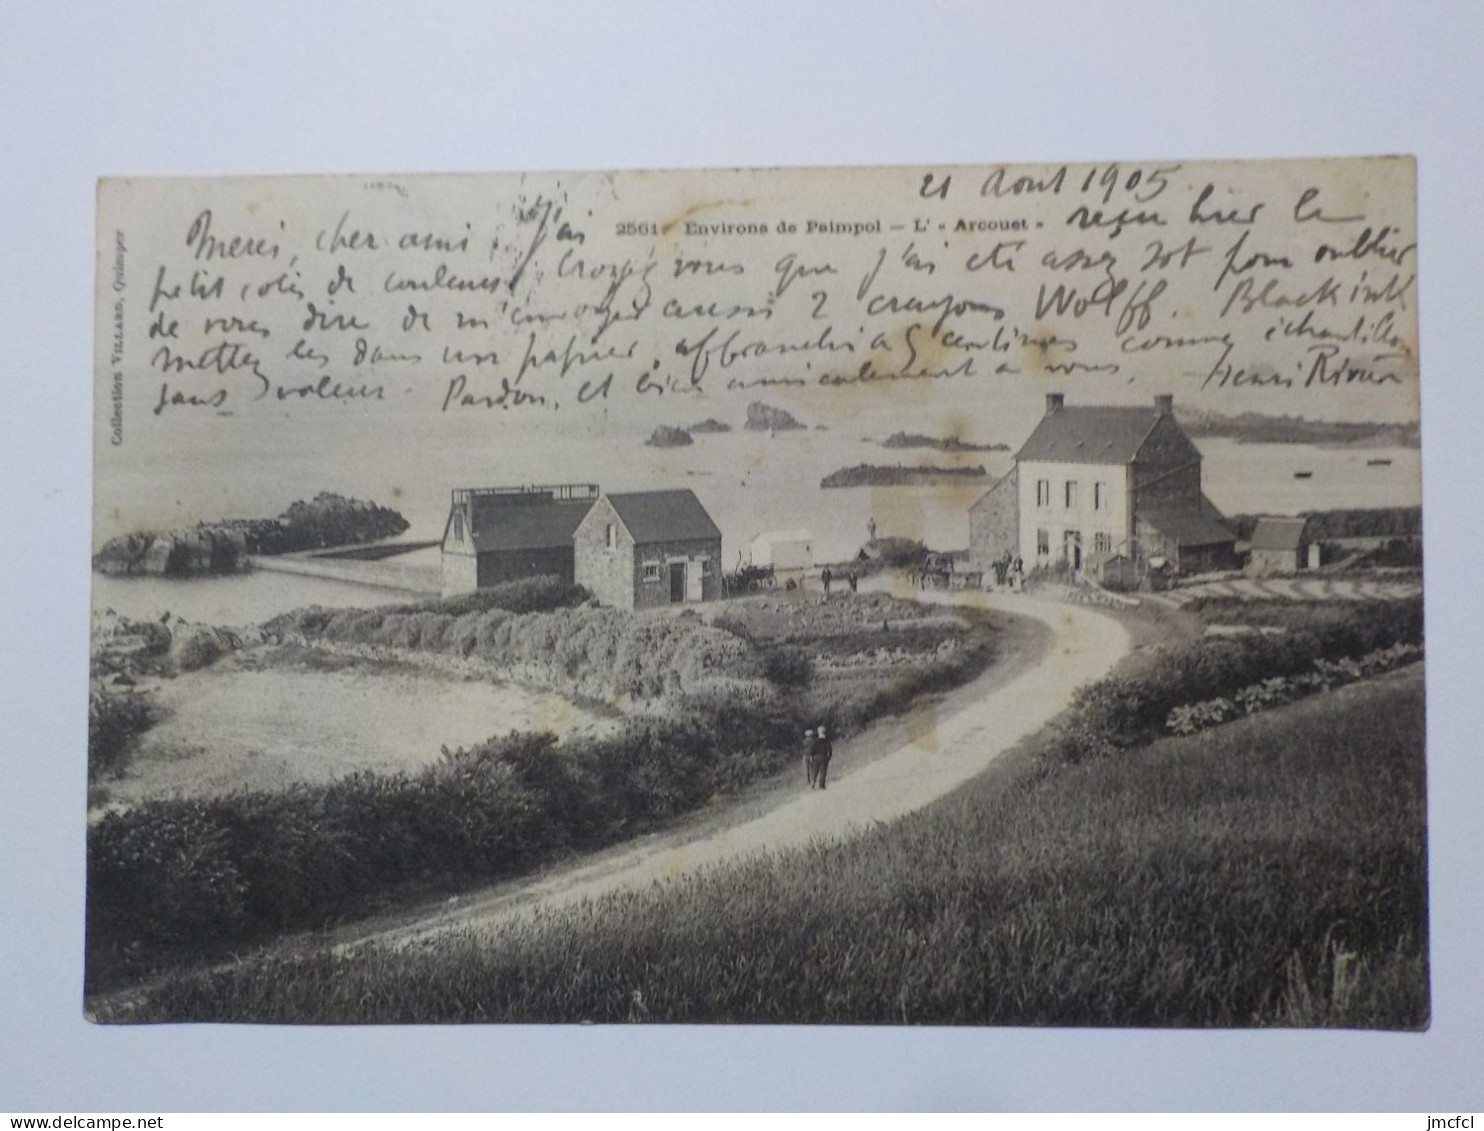 21 Aout 1905
2561 Environs de Paimpol — L' « Arcouet »
Merci, cher ami, j'ai reçu hier le
petit colis de couleurs. Croyez vous que j'ai été assez sot pour oublier
de vous dire de m'envoyer aussi 2 crayons Wolff. Black ink
mettez les dans un papier, affranchi à 5 centimes comme échantillon
sans valeur. Pardon, et bien amicalement a vous. Henri Rivière
Collection VILLARD, Quimper
delcampe.net
jmcfc1